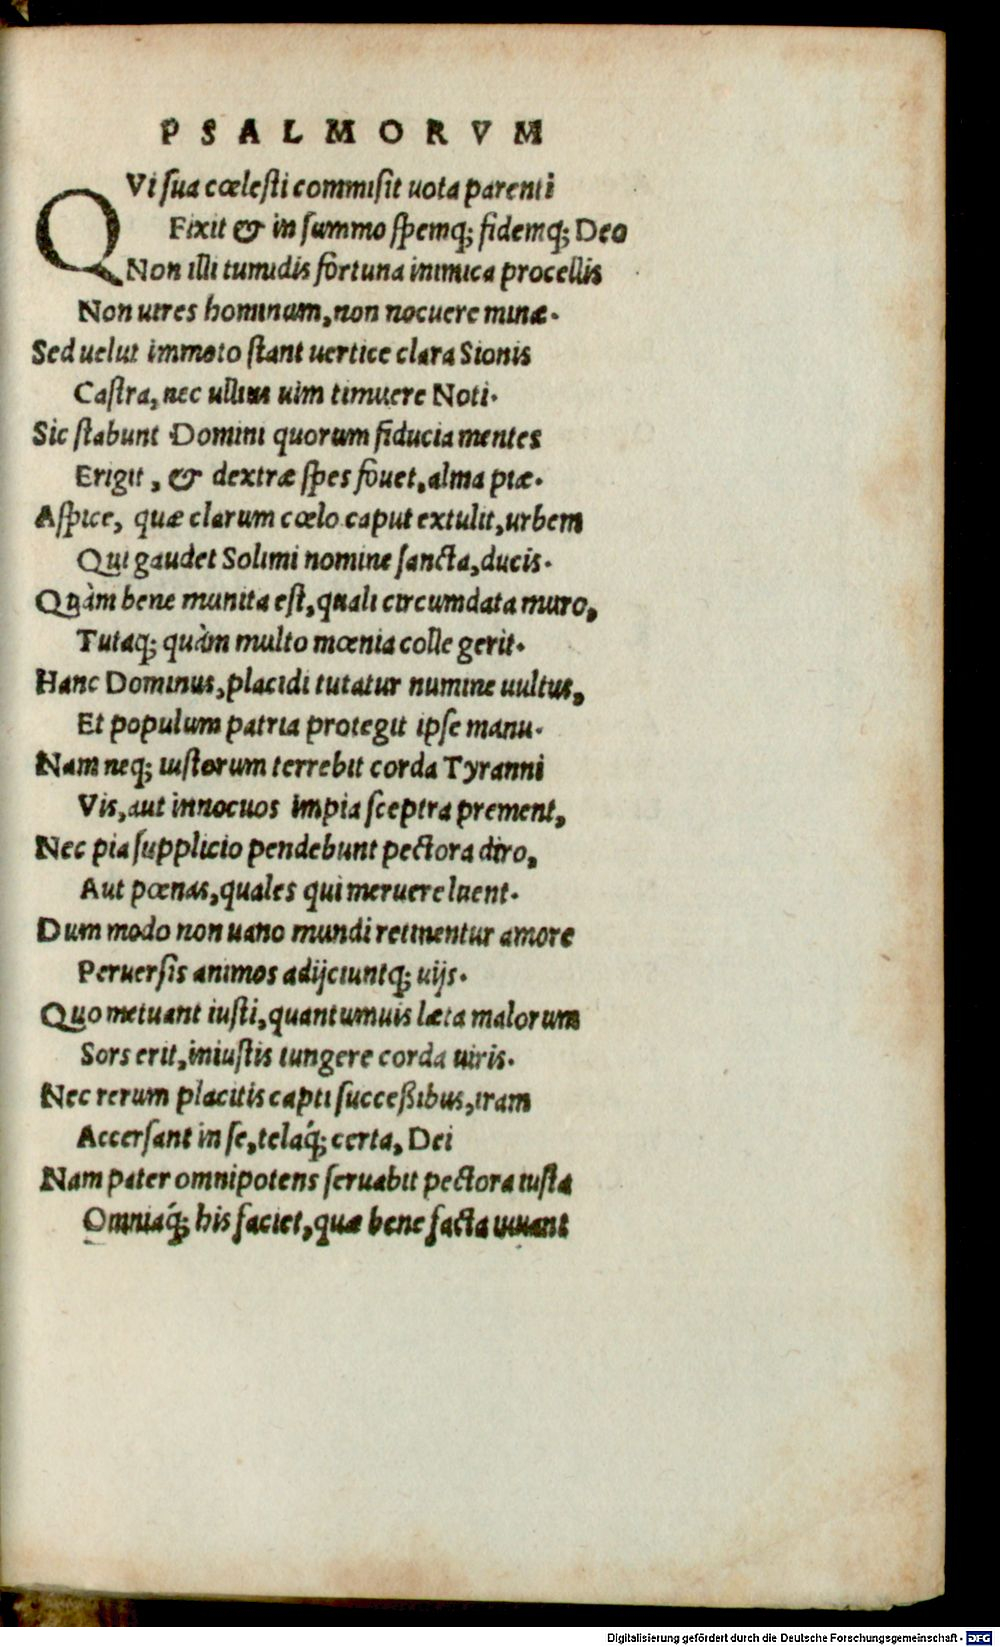 PSALMORVM
QVi sua cœlesti commisit uota parenti
Fixit & in summo spemq; fidemq; Deo
Non illi tumidis fortuna inimica procellis
Non uires hominum, non nocuere minæ.
Sed uelut immoto stant uertice clara Sionis
Castra, nec ullius uim timuere Noti.
Sic stabunt Domini quorum fiducia mentes
Erigit, & dextræ spes fouet, alma piæ.
Aspice, quæ clarum cœlo caput extulit, urbem
Qui gaudet Solimi nomine sancta, ducis.
Quàm bene munita est, quali circumdata muro,
Tutaq; quàm multo mœnia colle gerit.
Hanc Dominus, placidi tutatur numine uultus,
Et populum patria protegit ipse manu.
Nam neq; iustorum terrebit corda Tyranni
Vis, aut innocuos impia sceptra prement,
Nec pia supplicio pendebunt pectora diro,
Aut pœnas, quales qui meruere luent.
Dum modo non uano mundi retinentur amore
Peruersis animos adijciuntq; uijs.
Quo metuant iusti, quantumuis læta malorum
Sors erit, iniustis iungere corda uiris.
Nec rerum placitis capti successibus, iram
Accersant in se, telaq́; certa, Dei
Nam pater omnipotens seruabit pectora iusta
Omniaq́; his faciet, quæ bene facta iuuant
Digitalisierung gefördert durch die Deutsche Forschungsgemeinschaft - DFG